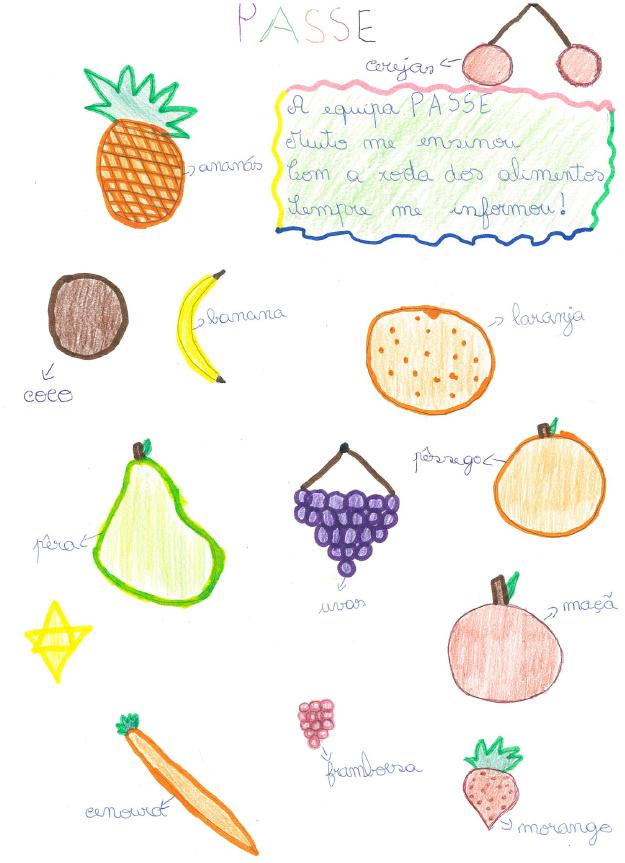 PASSE
cerejas
A equipa PASSE
Muito me ensinou
Com a roda dos alimentos
Sempre me informou!
ananás
banana
laranja
coco
pêssego
pêra
uvas
maçã
framboesa
cenoura
morango